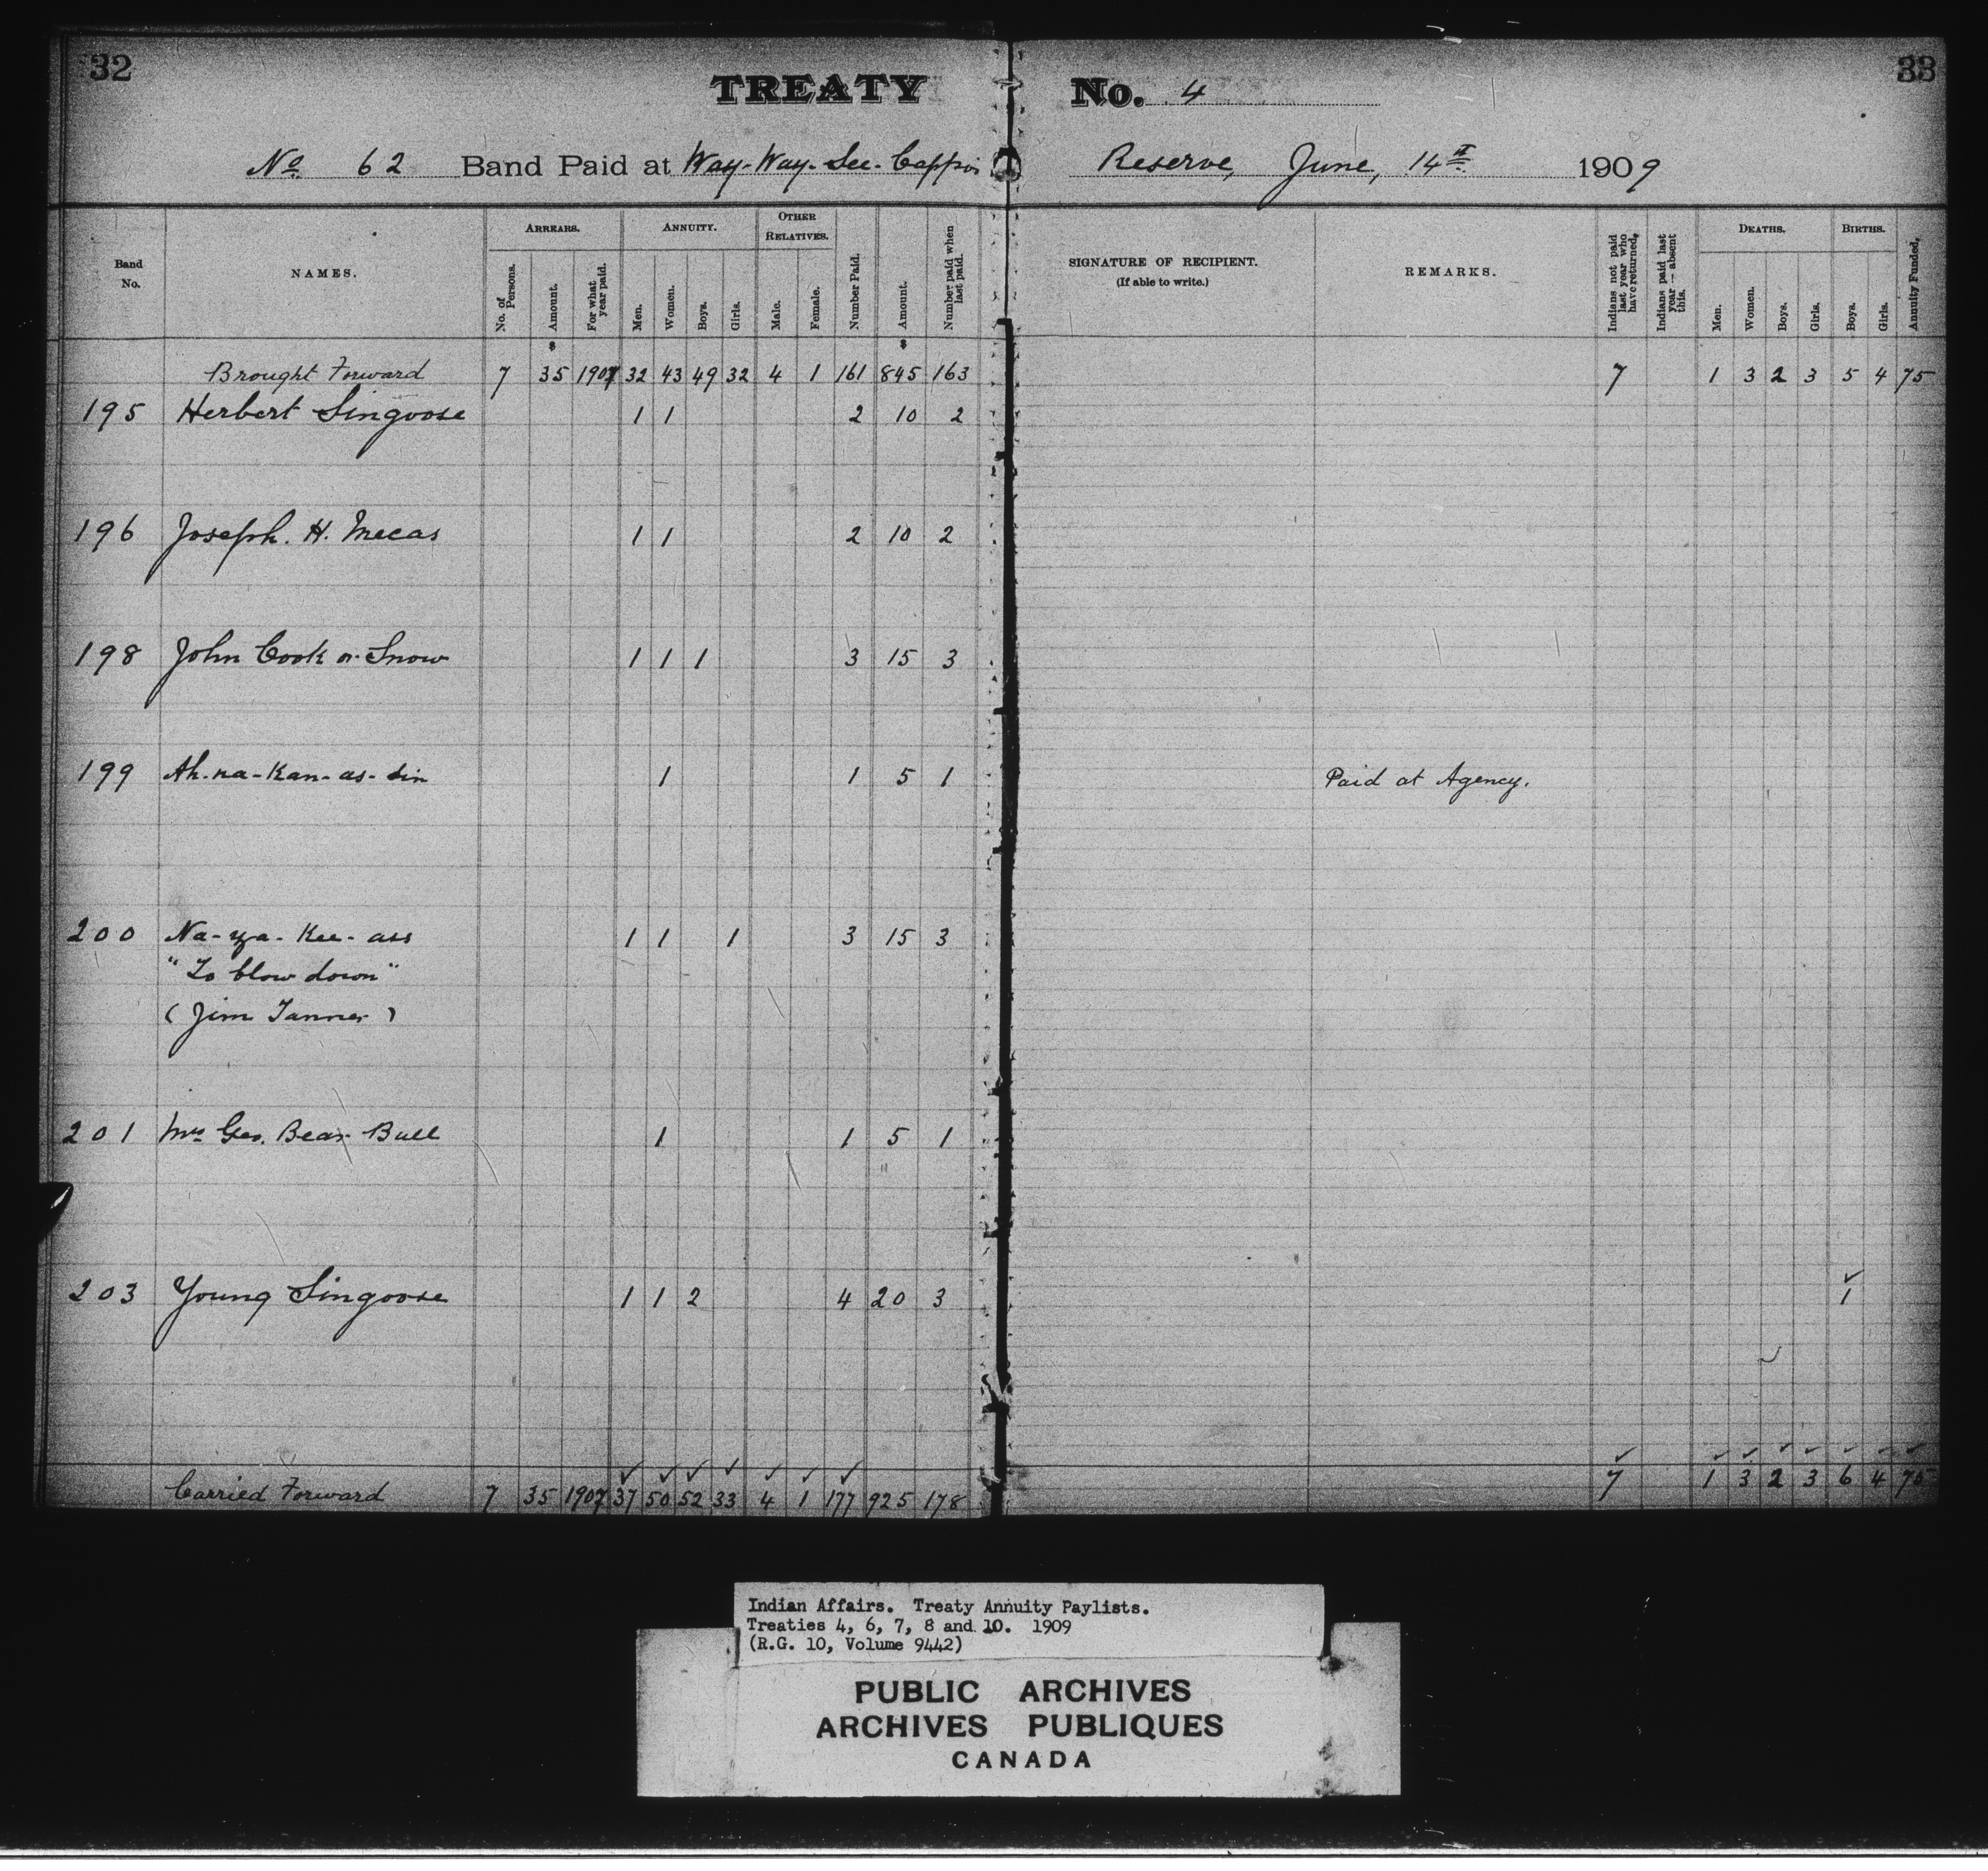 32
33
TREATY No. 4
No. 62 Band Paid at Way-Way-See-Cappo's Reserve, June, 14th 1909
Band No.
NAMES.
ARREARS.
No. of Persons.
Amount.
For what year paid.
ANNUITY.
Men.
Women.
Boys.
Girls.
OTHER RELATIVES.
Male.
Female.
Number Paid.
Amount.
Number paid when last paid.
SIGNATURE OF RECIPIENT.
(If able to write.)
REMARKS.
Indians not paid last year who have returned.
Indians paid last year — absent this.
DEATHS.
Men.
Women.
Boys.
Girls.
BIRTHS.
Boys.
Girls.
Annuity Funded.
$ $
Brought Forward 7 35 1907 32 43 49 32 4 1 161 845 163 7 1 3 2 3 5 4 75
195 Herbert Singoose 1 1 2 10 2
196 Joseph. H. Mecas 1 1 2 10 2
198 John Cook or Snow 1 1 1 3 15 3
199 Ah-na-Kan-as-sin 1 1 5 1 Paid at Agency.
200 Na-ya-Kee-ass 1 1 1 3 15 3
"To blow down"
(Jim Tanner)
201 Mrs Geo. Bear Bull 1 1 5 1
203 Young Singoose 1 1 2 4 20 3 1
Carried Forward 7 35 1907 37 50 52 33 4 1 177 925 178 7 1 3 2 3 6 4 75
Indian Affairs. Treaty Annuity Paylists.
Treaties 4, 6, 7, 8 and 10. 1909
(R.G. 10, Volume 9442)
PUBLIC ARCHIVES
ARCHIVES PUBLIQUES
CANADA